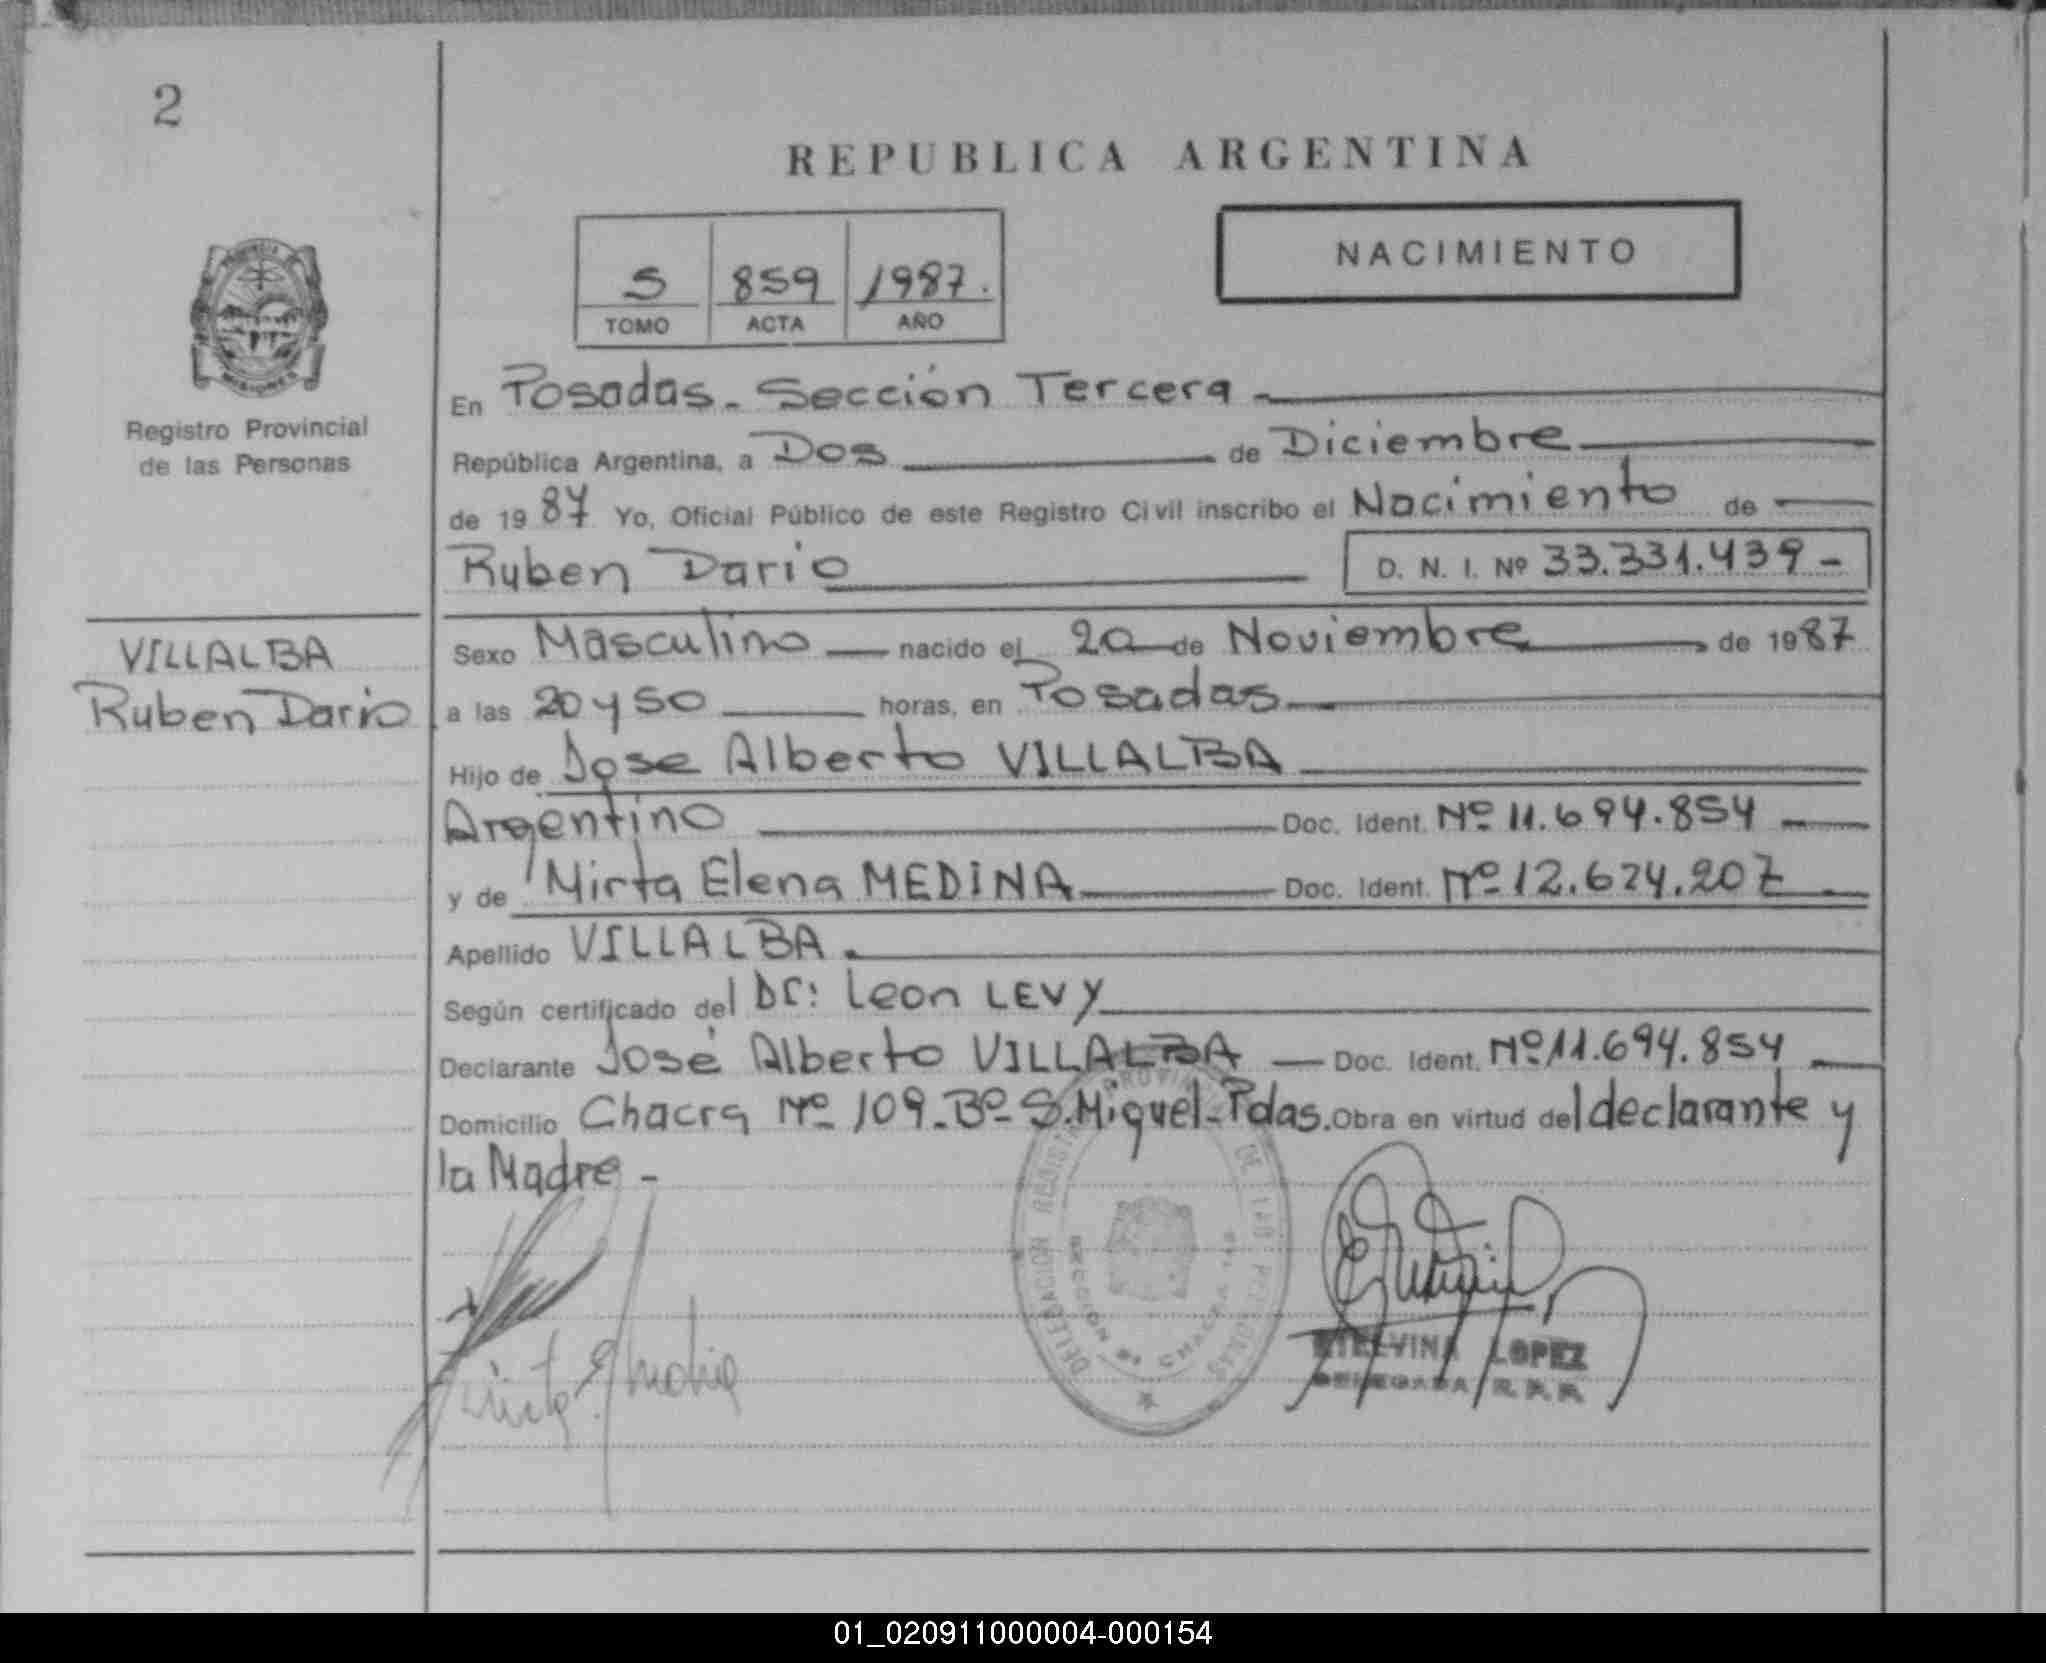 2
REPUBLICA ARGENTINA
NACIMIENTO
5 859 1987.
TOMO ACTA AÑO
PROVINCIA
MISIONES
Registro Provincial
de las Personas
En Posadas - Sección Tercera
República Argentina, a Dos de Diciembre
de 1987 Yo, Oficial Público de este Registro Civil inscribo el Nacimiento de
Ruben Dario D. N. I. Nº 33.331.439 -
VILLALBA
Ruben Dario
Sexo Masculino nacido el 20 de Noviembre de 1987
a las 20 y 50 horas, en Posadas
Hijo de Jose Alberto VILLALBA
Argentino Doc. Ident. Nº 11.694.854
y de Mirta Elena MEDINA Doc. Ident. Nº 12.624.207
Apellido VILLALBA.
Según certificado del Dr: Leon LEVY
Declarante José Alberto VILLALBA Doc. Ident. Nº 11.694.854
Domicilio Chacra Nº 109 - Bº S. Miguel - Pdas. Obra en virtud del declarante y
la Madre -
DELEGACION REGISTRO PROVINCIAL DE LAS PERSONAS
SECCION CHACRA
ETELVINA LOPEZ
DELEGADA
01_020911000004-000154